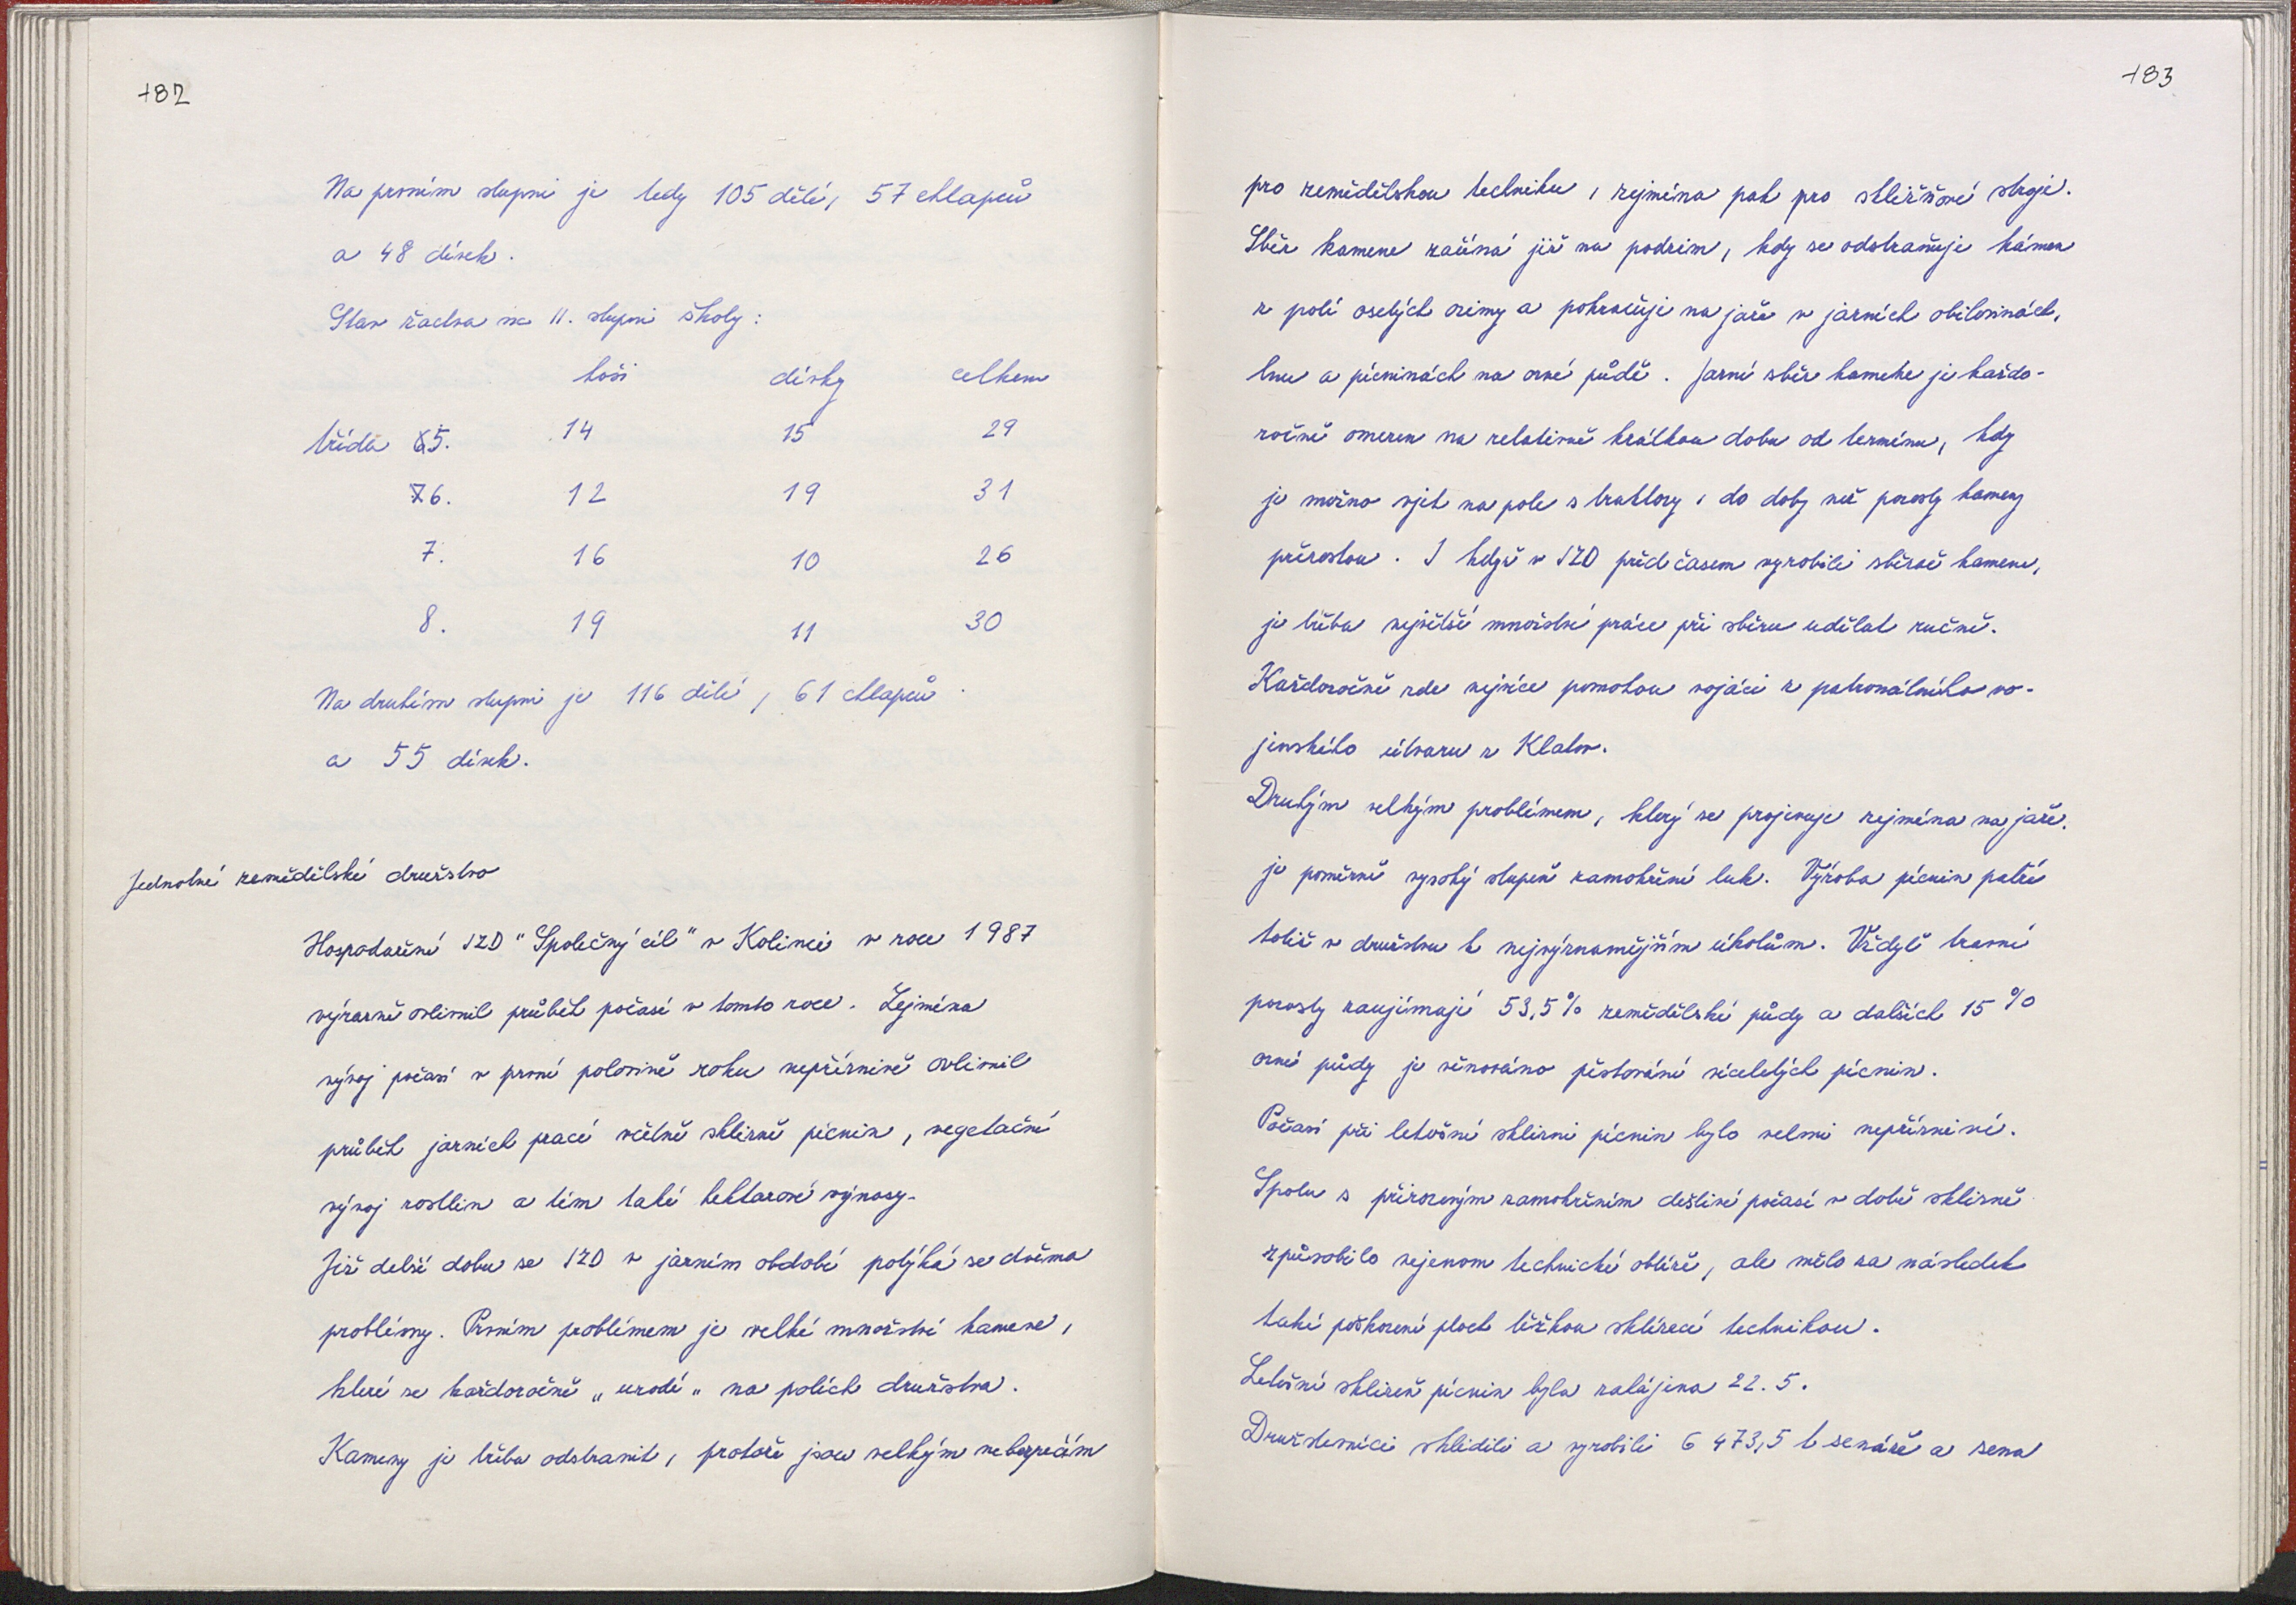 182
Na prvním stupni je tedy 105 dětí, 57 chlapců
a 48 dívek.
Stav žactva na II. stupni školy:
hoši dívky celkem
třída 5. 14 15 29
6. 12 19 31
7. 16 10 26
8. 19 11 30
Na druhém stupni je 116 dětí, 61 chlapců
a 55 dívek.
Jednotné zemědělské družstvo
Hospodaření JZD "Společný cíl" v Kolinci v roce 1987
výrazně ovlivnil průběh počasí v tomto roce. Zejména
vývoj počasí v první polovině roku nepříznivě ovlivnil
průběh jarních prací včetně sklizně pícnin, vegetační
vývoj rostlin a tím také hektarové výnosy.
Již delší dobu se JZD v jarním období potýká se dvěma
problémy. Prvním problémem je velké množství kamene,
které se každoročně „urodí„ na polích družstva.
Kameny je třeba odstranit, protože jsou velkým nebezpečím
183
pro zemědělskou techniku, zejména pak pro sklizňové stroje.
Sběr kamene začíná již na podzim, kdy se odstraňuje kámen
z polí osetých ozimy a pokračuje na jaře v jarních obilovinách,
lnu a pícninách na orné půdě. Jarní sběr kamene je každo-
ročně omezen na relativně krátkou dobu od termínu, kdy
je možno vjet na pole s traktory, do doby než porosty kameny
přerostou. I když v JZD před časem vyrobili sběrač kamene,
je třeba největší množství práce při sběru udělat ručně.
Každoročně zde nejvíce pomohou vojáci z patronátního vo-
jenského útvaru z Klatov.
Druhým velkým problémem, který se projevuje zejména na jaře,
je poměrně vysoký stupeň zamokření luk. Výroba pícnin patří
totiž v družstvu k nejvýznamějším úkolům. Vždyť travní
porosty zaujímají 53,5% zemědělské půdy a dalších 15 %
orné půdy je věnováno pěstování víceletých pícnin.
Počasí při letošní sklizni pícnin bylo velmi nepříznivé.
Spolu s přirozeným zamokřením deštivé počasí v době sklizně
způsobilo nejenom technické obtíže, ale mělo za následek
také poškození ploch těžkou sklízecí technikou.
Letošní sklizeň pícnin byla zahájena 22. 5.
Družstevníci sklidili a vyrobili 6 473,5 t senáže a sena